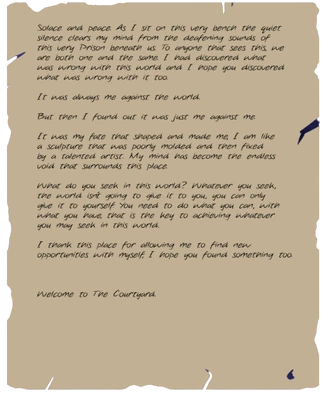 Solace and peace. As I sit on this very bench the quiet
silence clears my mind from the deafening sounds of
this very Prison beneath us. To anyone that sees this, we
are both one and the same. I had discovered what
was wrong with this world and I hope you discovered
what was wrong with it too.
It was always me against the world.
But then I found out it was just me against me.
It was my fate that shaped and made me, I am like
a sculpture that was poorly molded and then fixed
by a talented artist. My mind has become the endless
void that surrounds this place.
What do you seek in this world? Whatever you seek,
the world isn't going to give it to you, you can only
give it to yourself. You need to do what you can, with
what you have, that is the key to achieving whatever
you may seek in this world.
I thank this place for allowing me to find new
opportunities with myself, I hope you found something too.
Welcome to The Courtyard.